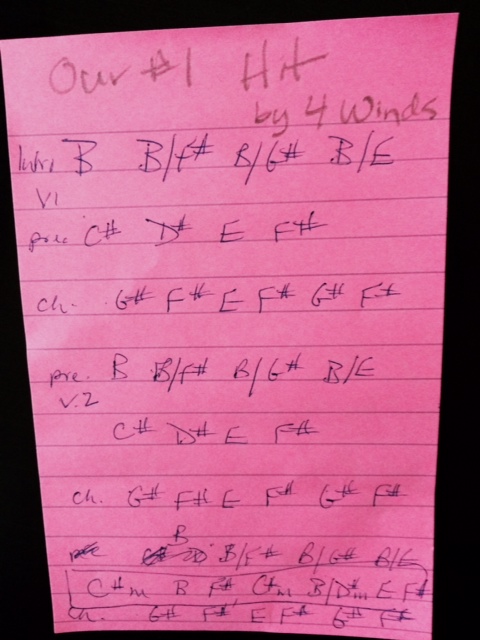 Our #1 Hit
by 4 Winds
Intro B B/F# B/G# B/E
V1
pre. C# D# E F#
ch. G# F# E F# G# F#
pre. B B/F# B/G# B/E
V.2
C# D# E F#
ch. G# F# E F# G# F#
B B/F# B/G# B/E
C#m B F# C#m B/D#m E F#
ch. G# F# E F# G# F#